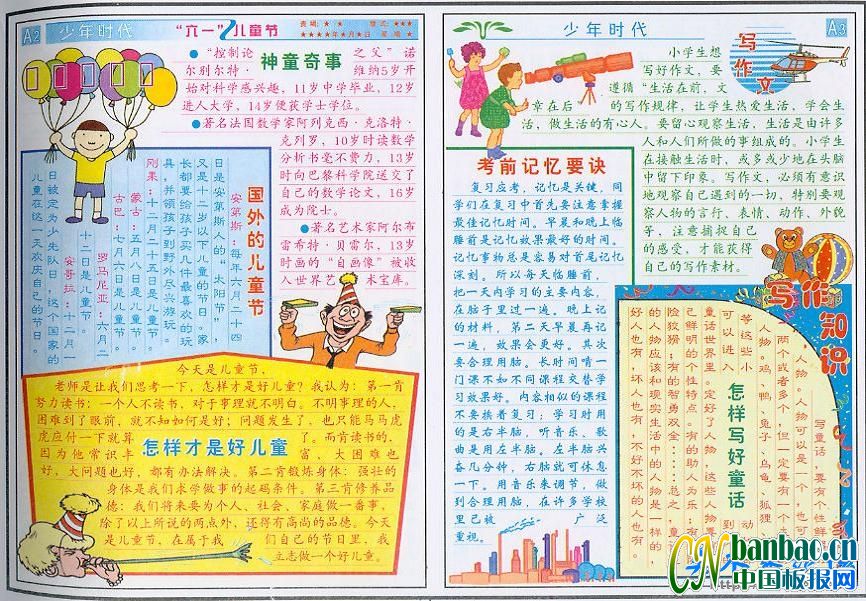 A2 少年时代
“六一”儿童节
责编：★ ★ 版式：★★★
★★★★年★月★日 星期★
神童奇事
●“控制论之父”诺
尔别尔特·维纳5岁开
始对科学感兴趣，11岁中学毕业，12岁
进人大学，14岁便获学士学位。
●著名法国数学家阿列克西·克洛特·
克列罗，10岁时读数学
分析书毫不费力，13岁
时向巴黎科学院送交了
自己的数学论文，16岁
成为院士。
●著名艺术家阿尔布
雷希特·贝雷尔，13岁
时画的“自画像”被收
人世界艺术宝库。
国外的儿童节
安第斯：每年六月二十四
日是安第斯人的“太阳节”，
又是十二岁以下儿童的节日。家
长都要给孩子买几件最喜欢的玩
具，并领孩子到野外尽兴游玩。
刚果：十二月二十五日是儿童节。
蒙古：五月八日是儿童节。
古巴：七月六日是儿童节。
罗马尼亚：六月二
十二日是儿童节。
安哥拉：十二月一
日被定为少先队日，这个国家的
儿童在这一天欢庆自己的节日。
怎样才是好儿童
今天是儿童节，
老师是让我们思考一下，怎样才是好儿童？我认为：第一肯
努力读书：一个人不读书，对于事理就不明白。不明事理的人，
困难到了眼前，就不知如何是好；问题发生了，也只能马马虎
虎应付一下就算了。而肯读书的，
因为他常识丰富、大困难也
好，大问题也好，都有办法解决。第二肯锻炼身体：强壮的
身体是我们求学做事的起码条件。第三肯修养品
德：我们将来要为个人、社会、家庭做一番事，
除了以上所说的两点外，还得有高尚的品德。今天
是儿童节，在属于我们自己的节日里，我
立志做一个好儿童。
少年时代 A3
写作文
小学生想
写好作文，要
遵循“生活在前，文
章在后的写作规律，让学生热爱生活，学会生
活，做生活的有心人。要留心观察生活，生活是由许多
人和人们所做的事组成的。小学生
在接触生活时，或多或少地在头脑
中留下印象。写作文，必须有意识
地观察自己遇到的一切，特别要观
察人物的言行、表情、动作、外貌
等，注意捕捉自己
的感受，才能获得
自己的写作素材。
考前记忆要诀
复习应考，记忆是关键，同
学们在复习中首先要注意掌握
最佳记忆时间。早晨和晚上临
睡前是记忆效果最好的时间。
记忆事物总是容易对首尾记忆
深刻。所以每天临睡前，
把一天内学习的主要内容，
在脑子里过一遍。晚上记
的材料，第二天早晨再记
一遍，效果会更好。其次
要合理用脑。长时间啃一
门课不如不同课程交替学
习效果好。内容相似的课程
不要挨着复习；学习时用
的是右半脑，听音乐、歌
曲是用左半脑。左半脑兴
奋几分钟，右脑就可休息
一下。用音乐来调节，做
到合理用脑，在许多学校
里已被广泛
重视。
写作知识
怎样写好童话
写童话，要有个性鲜
人物。人物可以是一个，也可
两个或者多个，但一定要有一个主
人物。鸡、鸭、兔子、乌龟、狐狸
等这些小动
可以进入到
童话世界里。定好了人物，这些人物要
己鲜明的个性特点。有的助人为乐；有
险狡猾；有的智勇双全……总之，童
的人物应该和现实生活中的人物是一样的，
好人也有，坏人也有，不好不坏的人也有。
CN banbao.cn
中国板报网